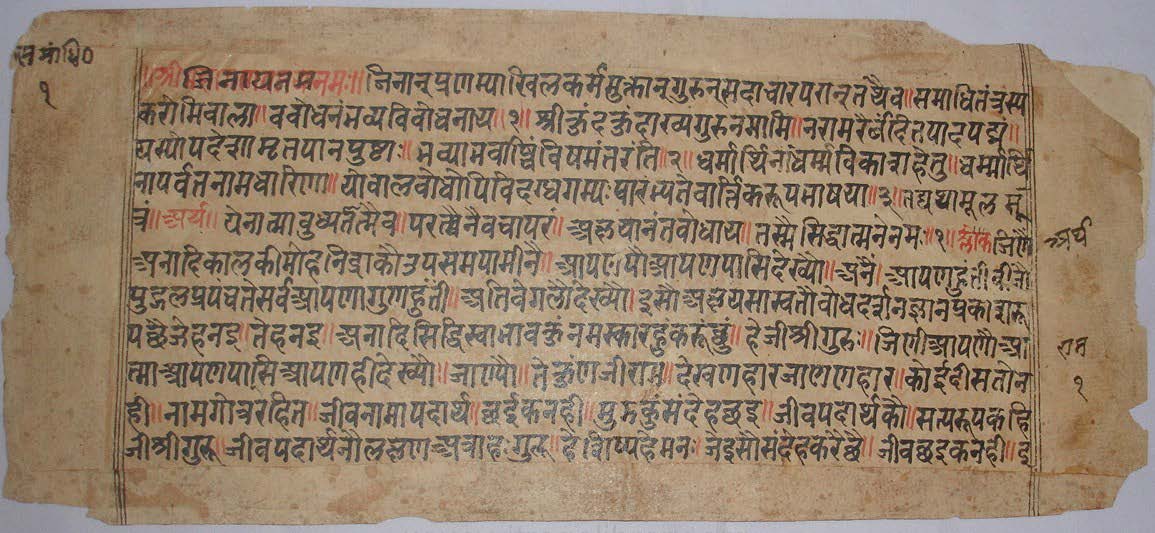 समाधि०
१
॥श्री जिनायनमनमः॥ जिनान् प्रणम्याखिलकर्ममुक्तान् गुरून् सदाचारपरान् तथैव॥ समाधितंत्रस्य
करोमि वाला॥ ववोधनं भव्यविवोधनाय॥१॥ श्रीकुंदकुंदाख्यगुरुं नमामि॥ नरामरैर्वंदितपादपद्मं॥
यस्योपदेशामृतपानपुष्टाः॥ भव्या भवाब्धिं विषमं तरंति॥२॥ धर्मार्थिनां धर्म्मविकाशहेतु॥ धर्म्मार्थि
ना पर्वतनामधारिणा॥ यो वालवोधोपि विदग्धगम्यः प्रारभ्यते वार्त्तिकरूपभाषया॥३॥ तद्यथा मूल सू
त्रं॥ अर्य॥ येनात्मा वुध्यतैत्मैव॥ परत्वेनैव चापरं॥ अक्षयानंतवोधाय॥ तस्मै सिद्धात्मने नमः॥१॥ जिणै
अर्थ
अनादिकालकी मोहनिद्राकौ उपसम पामीनै॥ आपणपौ आपणपासि देख्यौ॥ अनै॥ आपणहुंती वीजो
पुद्गल प्रपंच ते सर्व आपणा गुणहुंती॥ अति वेगलौ देख्यौ॥ इसौ अक्षय सास्वतौ वोध दर्शन ज्ञान प्रकाशरू
प छै जेहनइ॥ तेहनइ॥ अनादि सिद्धि स्वाभावकुं नमस्कारहु करूं छुं॥ हे जी श्री गुरु॥ जिणी आपणौ आ
राम
त्मा आपणपासि आपणही देख्यौ॥ जाण्यौ॥ ते कुंण जी राम॥ देखणहार जाणणहार॥ कोई दीसतो न
१
ही॥ नाम गोत्र रहित॥ जीवनामा पदार्थ॥ छई क नही॥ मुझकुं संदेह छइ॥ जीवपदार्थकौ॥ सत्यरूप कहि
जी श्री गुरु॥ जीवपदार्थनौ लक्षण अवाह गुरु॥ हे शिष्य हे मन जइसौ संदेह करै छै॥ जीव छइ क नही॥ इ